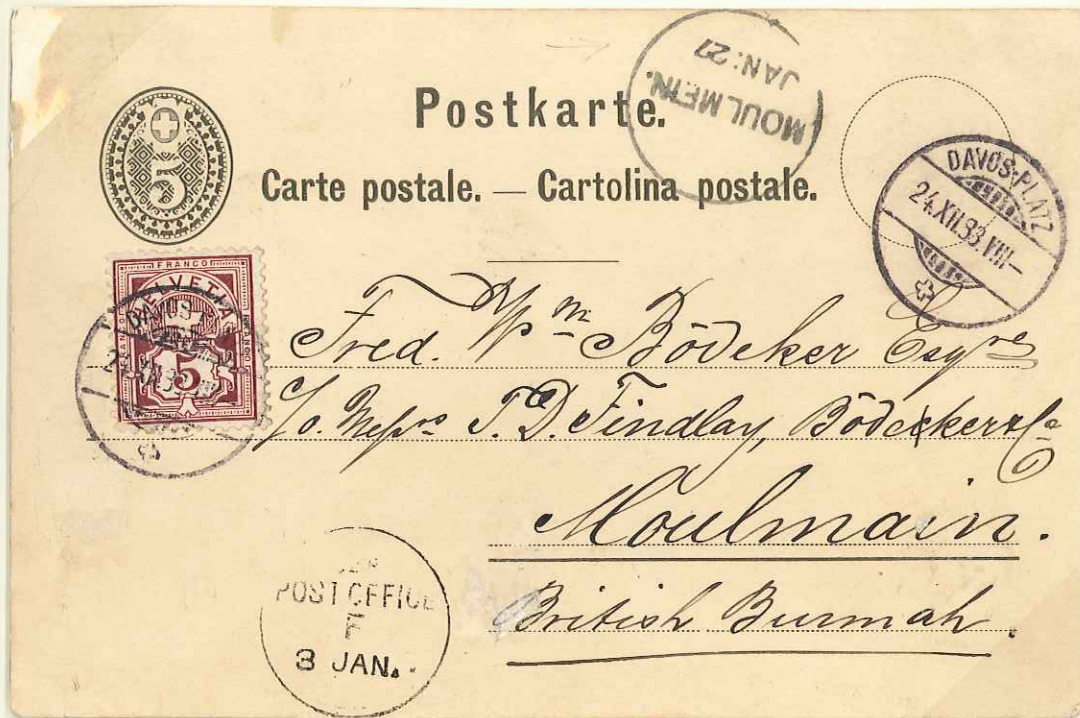 MOULMEIN.
JAN: 27
5
Postkarte.
Carte postale. — Cartolina postale.
DAVOS-PLATZ
24.XII.93.VIII—
FRANCO
HELVETIA
FRANCO
5
DAVOS
Fred. Wm Bödeker Esqre
C/o. Messrs T. D. Findlay, Bödeker & Co
Moulmain.
British Burmah.
POST OFFICE
F
3 JAN.